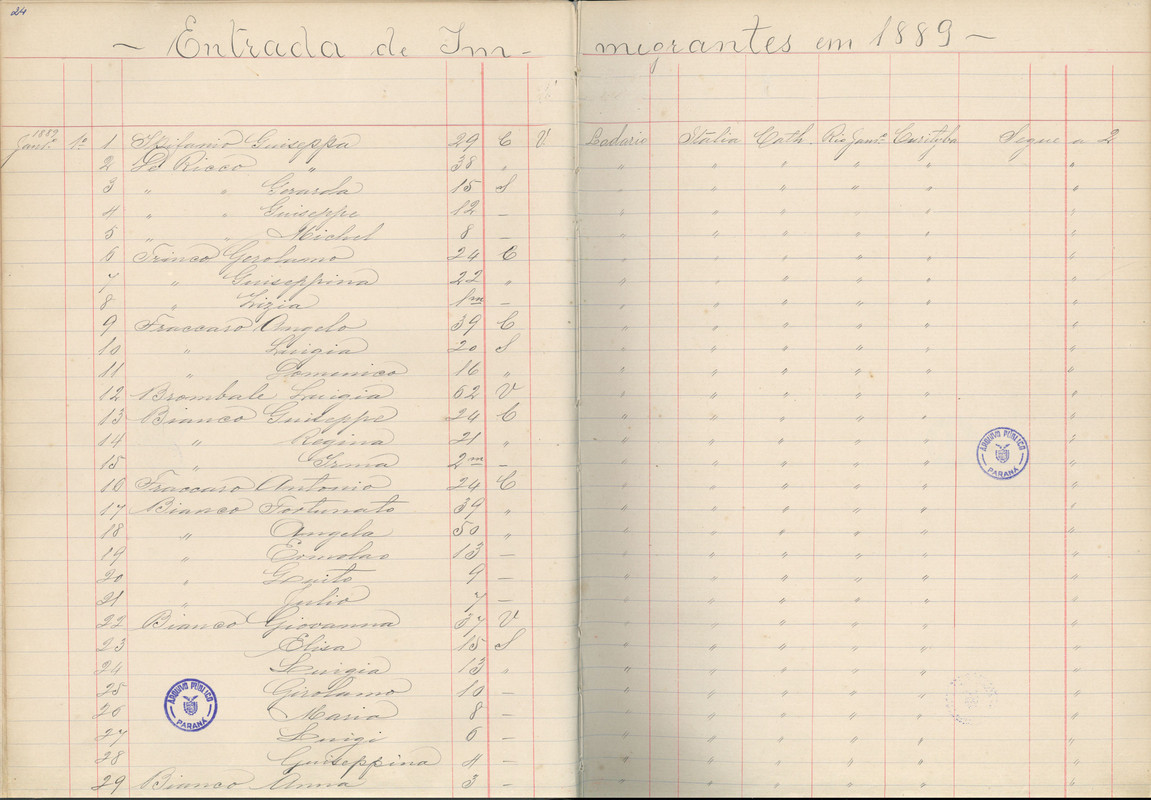 24
Entrada de Immigrantes em 1889
1889
Jan.º 1º 1 Stifanio Guiseppa 29 C V Ladario Italia Cath. Rio Jan.º Curityba Segue a 2
2 De Ricco " 38 " " " " " " "
3 " " Gerarda 15 S " " " " " "
4 " " Guiseppe 12 – " " " " " "
5 " " Michel 8 – " " " " " "
6 Trinco Gerolumo 24 C " " " " " "
7 " Guiseppina 22 " " " " " " "
8 " Lizia 1m – " " " " " "
9 Fraccaro Angelo 39 C " " " " " "
10 " Luigia 20 S " " " " " "
11 " Domenico 16 " " " " " " "
12 Brombale Luigia 62 V " " " " " "
13 Bianco Guiseppe 24 C " " " " " "
14 " Regina 21 " " " " " " "
15 " Irma 2m – " " " " " "
16 Fraccaro Antonio 24 C " " " " " "
17 Bianco Fortunato 39 " " " " " " "
18 " Angela 50 " " " " " " "
19 " Ermolao 13 – " " " " " "
20 " 9 – " " " " " "
21 " Julio 7 – " " " " " "
22 Bianco Giovanna 37 V " " " " " "
23 Elisa 15 S " " " " " "
24 Luigia 13 " " " " " " "
25 Girolamo 10 – " " " " " "
26 Maria 8 – " " " " " "
27 Luigi 6 – " " " " " "
28 Guiseppina 4 – " " " " " "
29 Bianco Anna 3 – " " " " " "
ARQUIVO PÚBLICO
PARANÁ
ARQUIVO PÚBLICO
PARANÁ